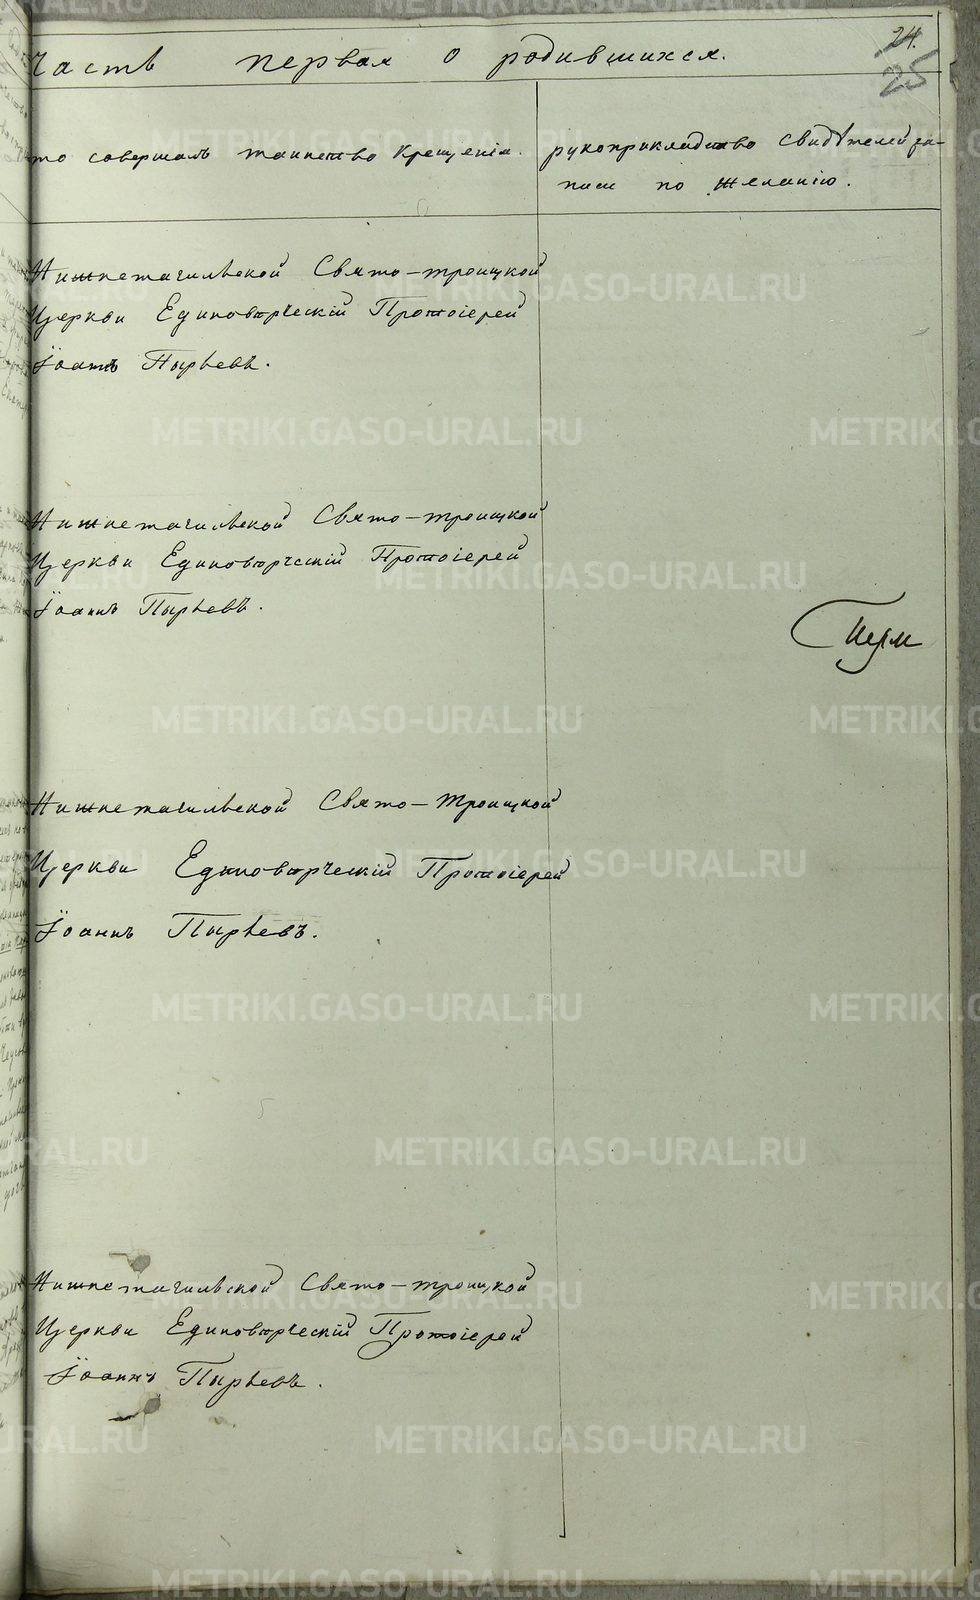 24.
25
Часть первая о родившихся.
то совершалъ таинство Крещенія.
рукоприкладство свидѣтелей за-
писи по желанію.
Нижнетагильской Свято-троицкой
Церкви Единовѣрческій Протоіерей
Іоаннъ Пырьевъ.
Нижнетагильской Свято-троицкой
Церкви Единовѣрческій Протоіерей
Іоаннъ Пырьевъ.
Нижнетагильской Свято-Троицкой
Церкви Единовѣрческій Протоіерей
Іоаннъ Пырьевъ.
Нижнетагильской Свято-троицкой
Церкви Единовѣрческій Протоіерей
Іоаннъ Пырьевъ.
METRIKI.GASO-URAL.RU